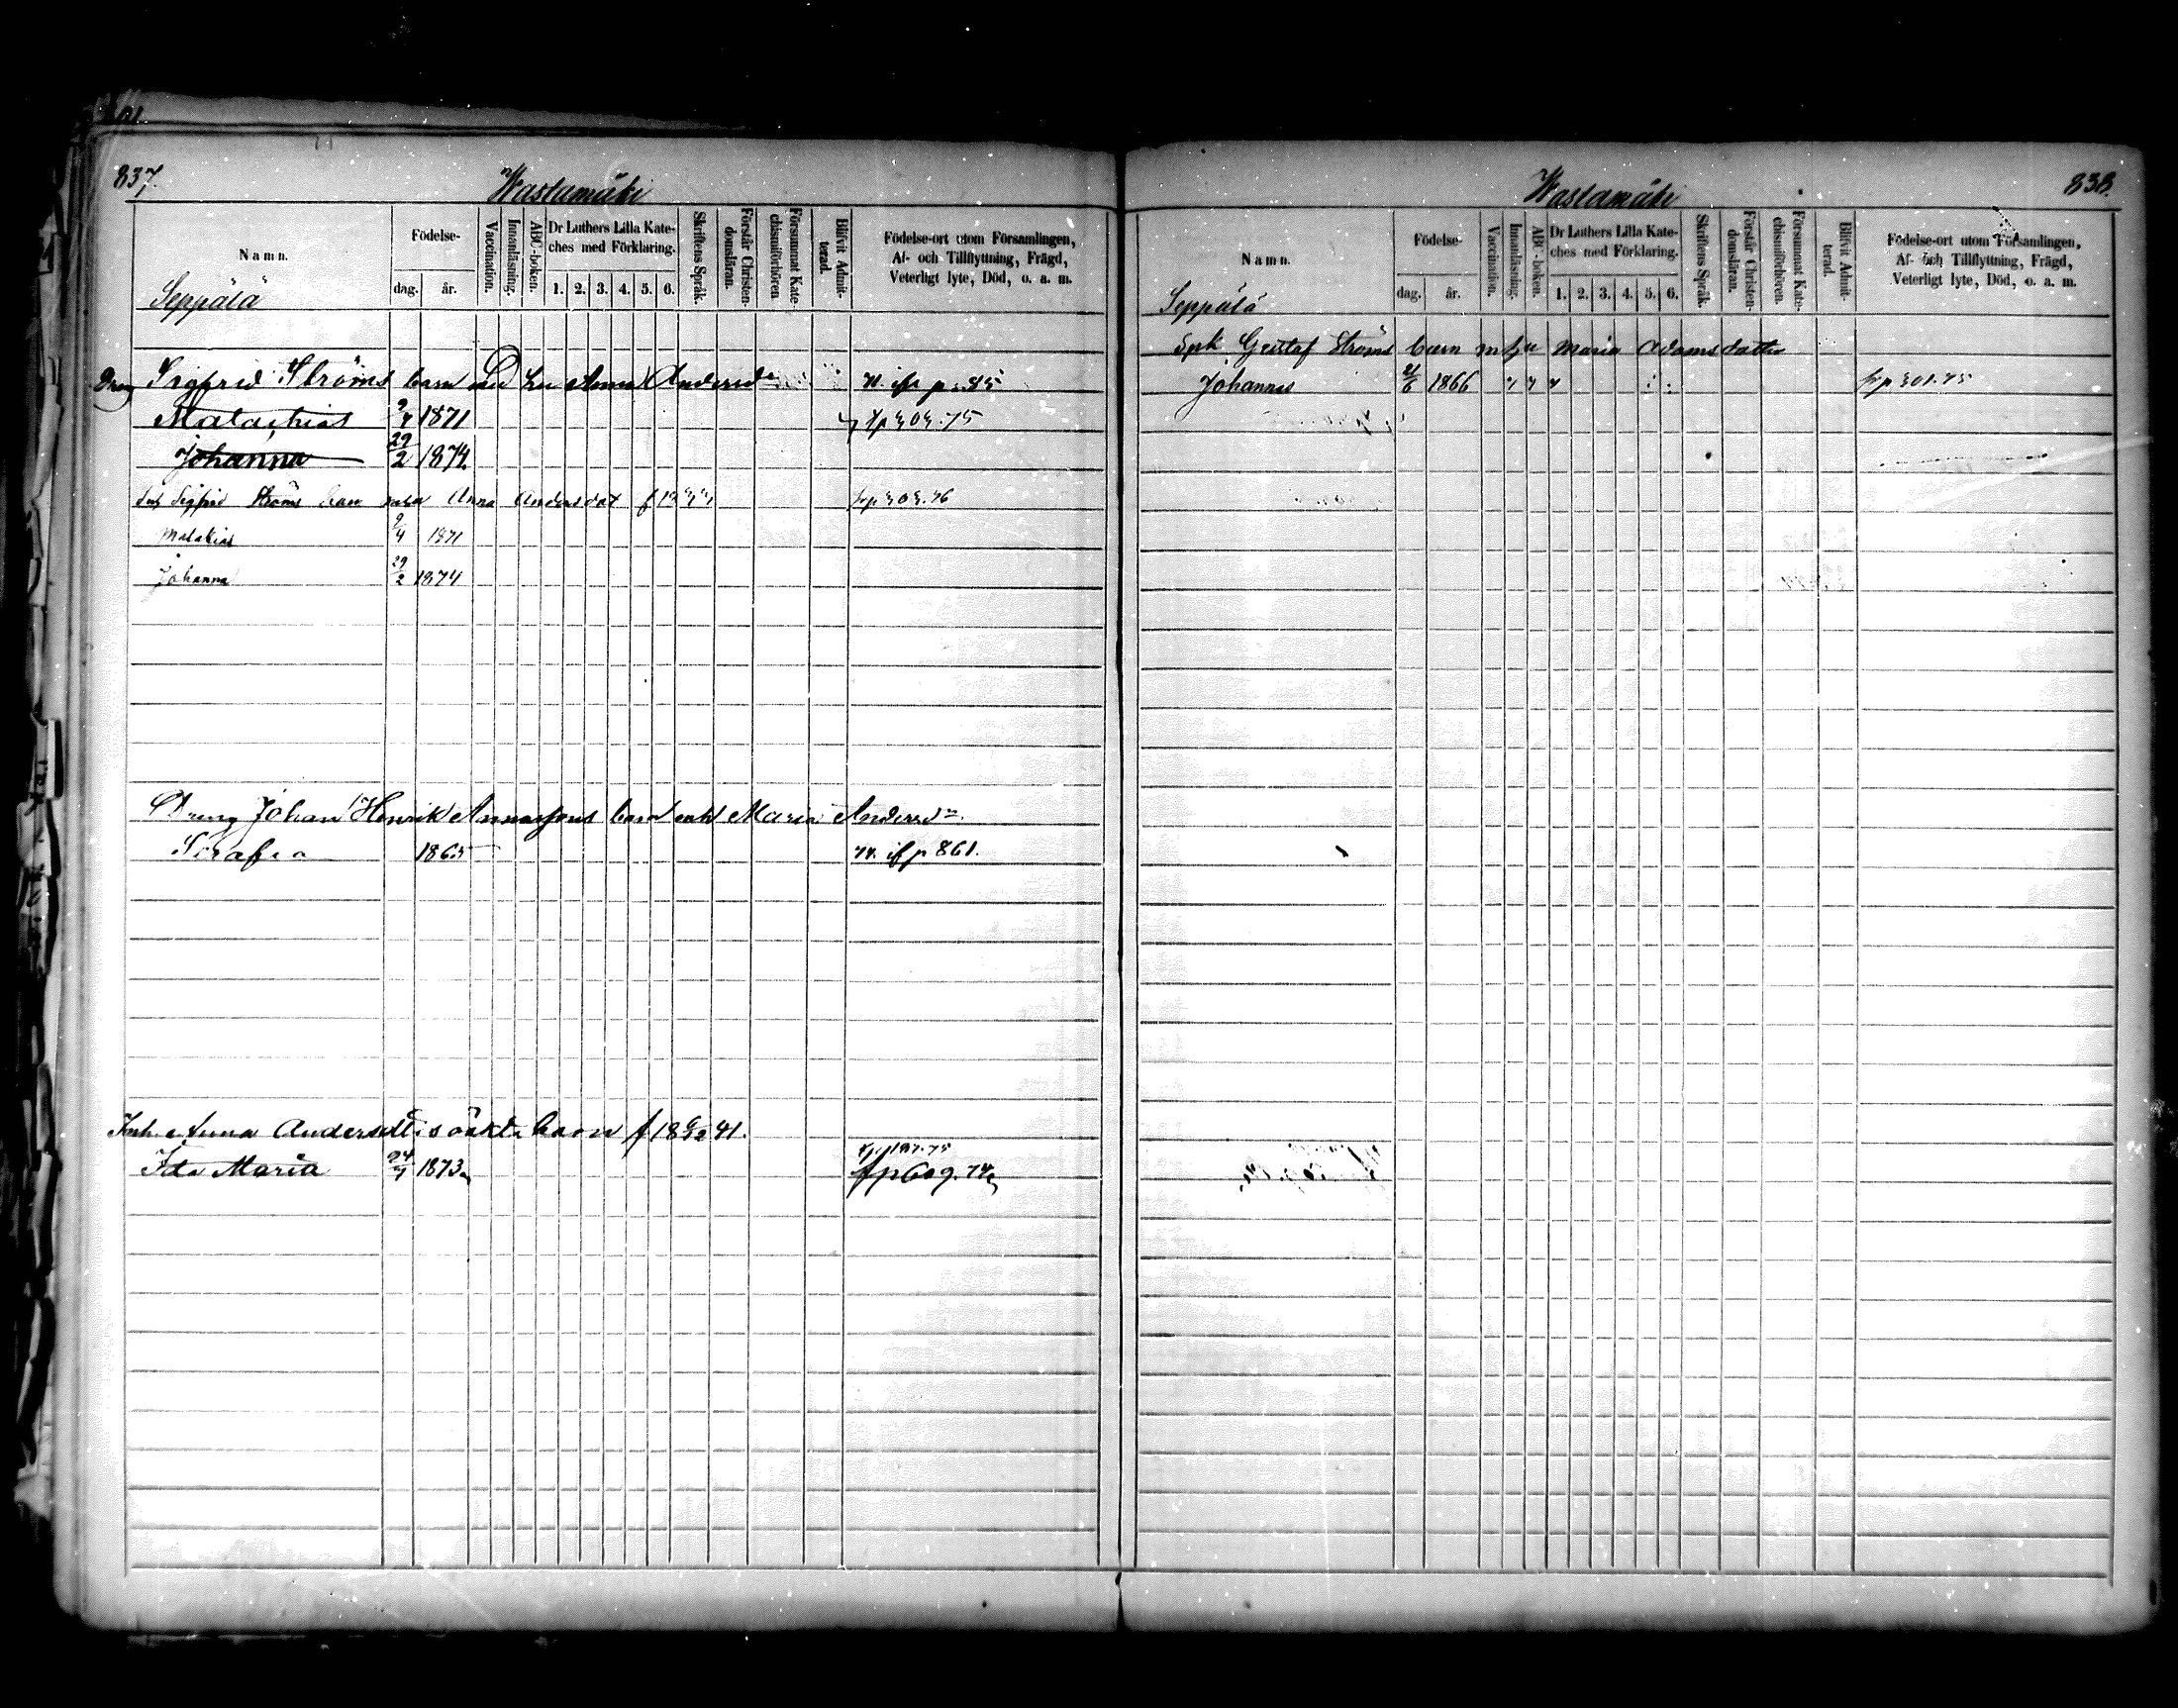 837.
Wastamäki
Namn.
Födelse-
dag. år.
Vaccination.
Innanläsning.
ABC-boken.
Dr Luthers Lilla Kate-
ches med Förklaring.
1. 2. 3. 4. 5. 6.
Skriftens Språk.
Förstår Christen-
domsläran.
Försummat Kate-
chismiförhören
Blifvit Admit-
terad.
Födelse-ort utom Församlingen,
Af- och Tillflyttning, Frägd,
Veterligt lyte, Död, o. a. m.
Seppälä
Dreng Sigfrid Ströms barn med hu Anna Andersdr
Malachias 9/4 1871
Johanna 29/2 1874
Sigfrid Ströms barn Anna Andersdot
Malakias 9/4 1871
Johanna 29/2 1874
Dreng Johan Henrik barn Maria Andersdr
Serafia 1865 if p 861.
Inh. Anna Andersdts oäkta barn f 18 41.
fp 197.75
Ida Maria 24/7 1873 fp 609.74
838.
Wastamäki
Namn.
Födelse-
dag. år.
Vaccination.
Innanläsning.
ABC-boken.
Dr Luthers Lilla Kate-
ches med Förklaring.
1. 2. 3. 4. 5. 6.
Skriftens Språk.
Förstår Christen-
domsläran.
Försummat Kate-
chismiförhören.
Blifvit Admit-
terad.
Födelse-ort utom Församlingen,
Af- och Tillflyttning, Frägd,
Veterligt lyte, Död, o. a. m.
Seppälä
Spk Gustaf Ströms barn m hu Maria Adamsdotter
Johannes 1866